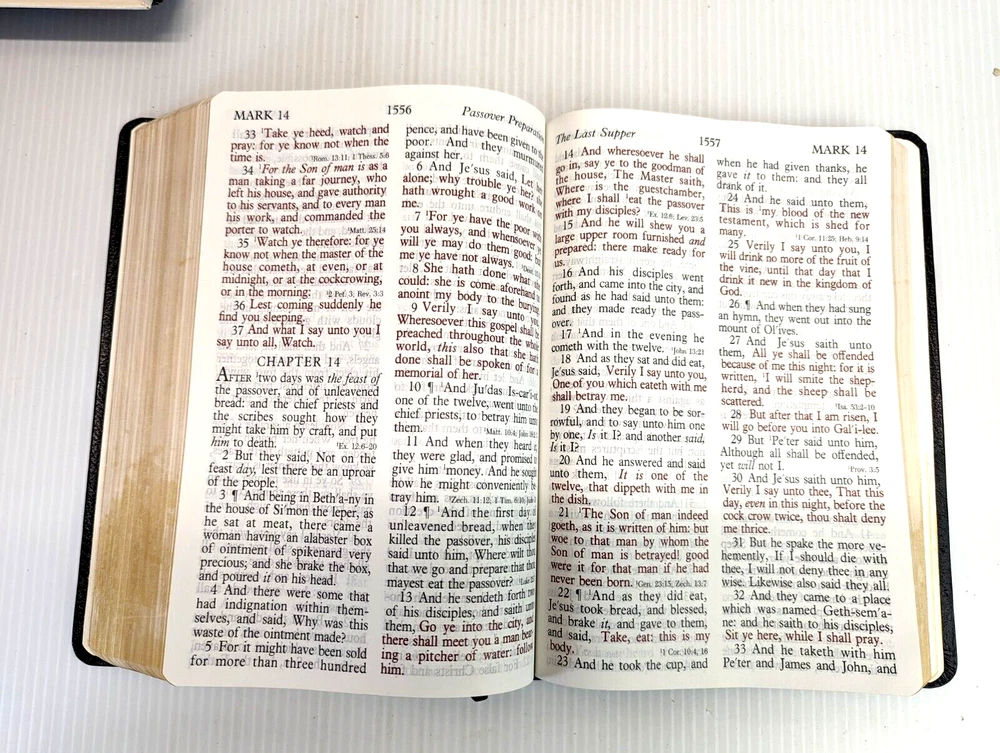 MARK 14
1556
Passover Preparation
33 ¹Take ye heed, watch and
pray: for ye know not when the
time is. ¹Rom. 13:11; 1 Thess. 5:6
34 ¹For the Son of man is as a
man taking a far journey, who
left his house, and gave authority
to his servants, and to every man
his work, and commanded the
porter to watch. ¹Matt. 25:14
35 ¹Watch ye therefore: for ye
know not when the master of the
house cometh, at even, or at
midnight, or at the cockcrowing,
or in the morning: ¹2 Pet. 3; Rev. 3:3
36 Lest coming suddenly he
find you sleeping.
37 And what I say unto you I
say unto all, Watch.
CHAPTER 14
AFTER ¹two days was the feast of
the passover, and of unleavened
bread: and the chief priests and
the scribes sought how they
might take him by craft, and put
him to death. ¹Ex. 12:6-20
2 But they said, Not on the
feast day, lest there be an uproar
of the people.
3 ¶ And being in Beth'a-ny in
the house of Si'mon the leper, as
he sat at meat, there came a
woman having an alabaster box
of ointment of spikenard very
precious; and she brake the box,
and poured it on his head.
4 And there were some that
had indignation within them-
selves, and said, Why was this
waste of the ointment made?
5 For it might have been sold
for more than three hundred
pence, and have been given to the
poor. And they murmured
against her.
6 And Je'sus said, Let her
alone; why trouble ye her? she
hath wrought a good work on
me.
7 ¹For ye have the poor with
you always, and whensoever ye
will ye may do them good: but
me ye have not always.
8 She hath done what she
could: she is come aforehand to
anoint my body to the burying.
9 Verily I say unto you,
Wheresoever this gospel shall be
preached throughout the whole
world, this also that she hath
done shall be spoken of for a
memorial of her.
10 ¶ ¹And Ju'das Is-car'i-ot,
one of the twelve, went unto the
chief priests, to betray him unto
them. ¹Matt. 10:4; John
11 And when they heard it,
they were glad, and promised to
give him ¹money. And he sought
how he might conveniently be-
tray him. ¹Zech. 11:12; 1 Tim. 6:10;
12 ¶ ¹And the first day of
unleavened bread, when they
killed the passover, his disciples
said unto him, Where wilt thou
that we go and prepare that thou
mayest eat the passover?
13 And he sendeth forth two
of his disciples, and saith unto
them, Go ye into the city, and
there shall meet you a man bear-
ing a pitcher of water: follow
him.
The Last Supper
1557
MARK 14
14 And wheresoever he shall
go in, say ye to the goodman of
the house, The Master saith,
Where is the guestchamber,
where I shall ¹eat the passover
with my disciples? ¹Ex. 12:6; Lev. 23:5
15 And he will shew you a
large upper room furnished and
prepared: there make ready for
us.
16 And his disciples went
forth, and came into the city, and
found as he had said unto them:
and they made ready the pass-
over.
17 ¹And in the evening he
cometh with the twelve. ¹John 13:21
18 And as they sat and did eat,
Je'sus said, Verily I say unto you,
One of you which eateth with me
shall betray me.
19 And they began to be sor-
rowful, and to say unto him one
by one, Is it I? and another said,
Is it I?
20 And he answered and said
unto them, It is one of the
twelve, that dippeth with me in
the dish.
21 ¹The Son of man indeed
goeth, as it is written of him: but
woe to that man by whom the
Son of man is betrayed! good
were it for that man if he had
never been born. ¹Gen. 23:15; Zech. 13:7
22 ¶ ¹And as they did eat,
Je'sus took bread, and blessed,
and brake it, and gave to them,
and said, Take, eat: this is my
body. ¹1 Cor. 10:4, 16
23 And he took the cup, and
when he had given thanks, he
gave it to them: and they all
drank of it.
24 And he said unto them,
This is ¹my blood of the new
testament, which is shed for
many. ¹1 Cor. 11:25; Heb. 9:14
25 Verily I say unto you, I
will drink no more of the fruit of
the vine, until that day that I
drink it new in the kingdom of
God.
26 ¶ And when they had sung
an hymn, they went out into the
mount of Ol'ives.
27 And Je'sus saith unto
them, All ye shall be offended
because of me this night: for it is
written, ¹I will smite the shep-
herd, and the sheep shall be
scattered. ¹Isa. 53:2-10
28 But after that I am risen, I
will go before you into Gal'i-lee.
29 But ¹Pe'ter said unto him,
Although all shall be offended,
yet will not I. ¹Prov. 3:5
30 And Je'sus saith unto him,
Verily I say unto thee, That this
day, even in this night, before the
cock crow twice, thou shalt deny
me thrice.
31 But he spake the more ve-
hemently, If I should die with
thee, I will not deny thee in any
wise. Likewise also said they all.
32 And they came to a place
which was named Geth-sem'a-
ne: and he saith to his disciples,
Sit ye here, while I shall pray.
33 And he taketh with him
Pe'ter and James and John, and